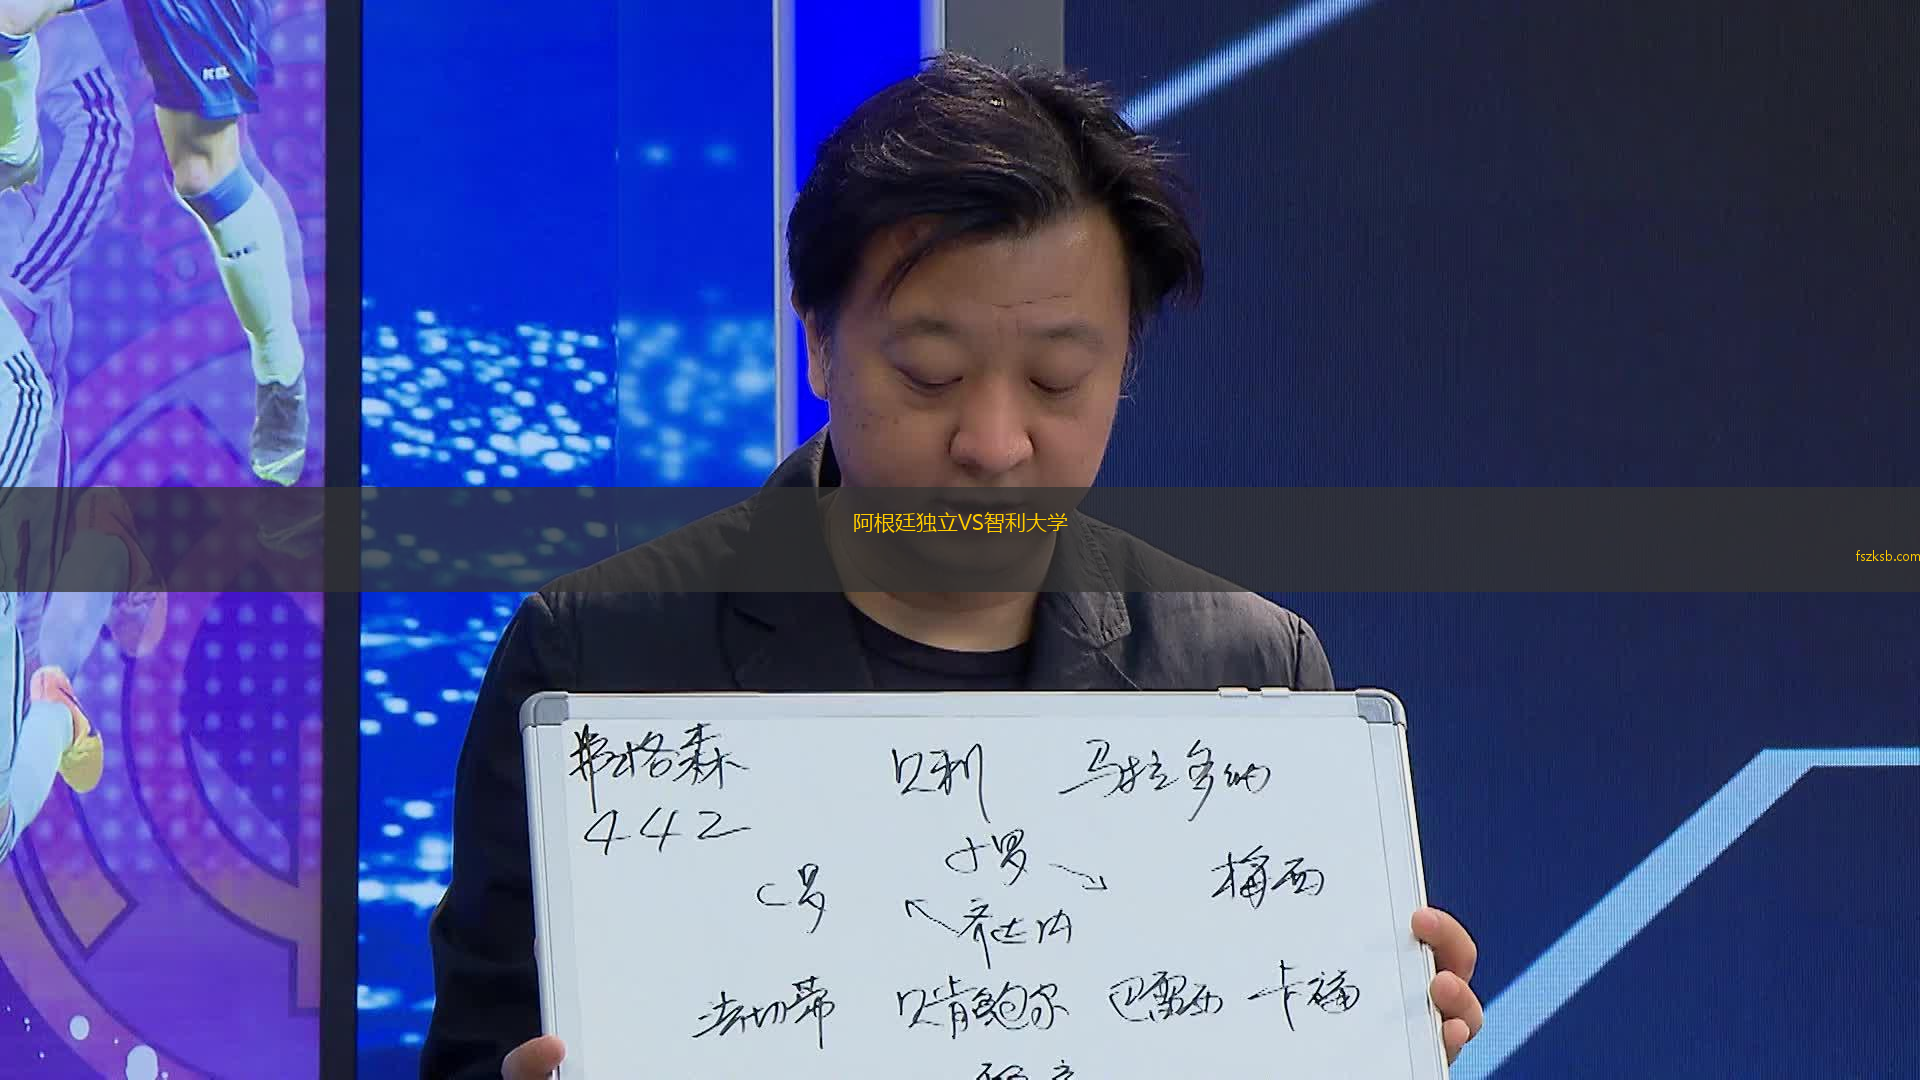 KEL
阿根廷独立VS智利大学
fszksb.com
弗格森 贝利 马拉多纳
442
小罗
C罗 梅西
齐达内
法切蒂 贝肯鲍尔 巴雷西 卡福